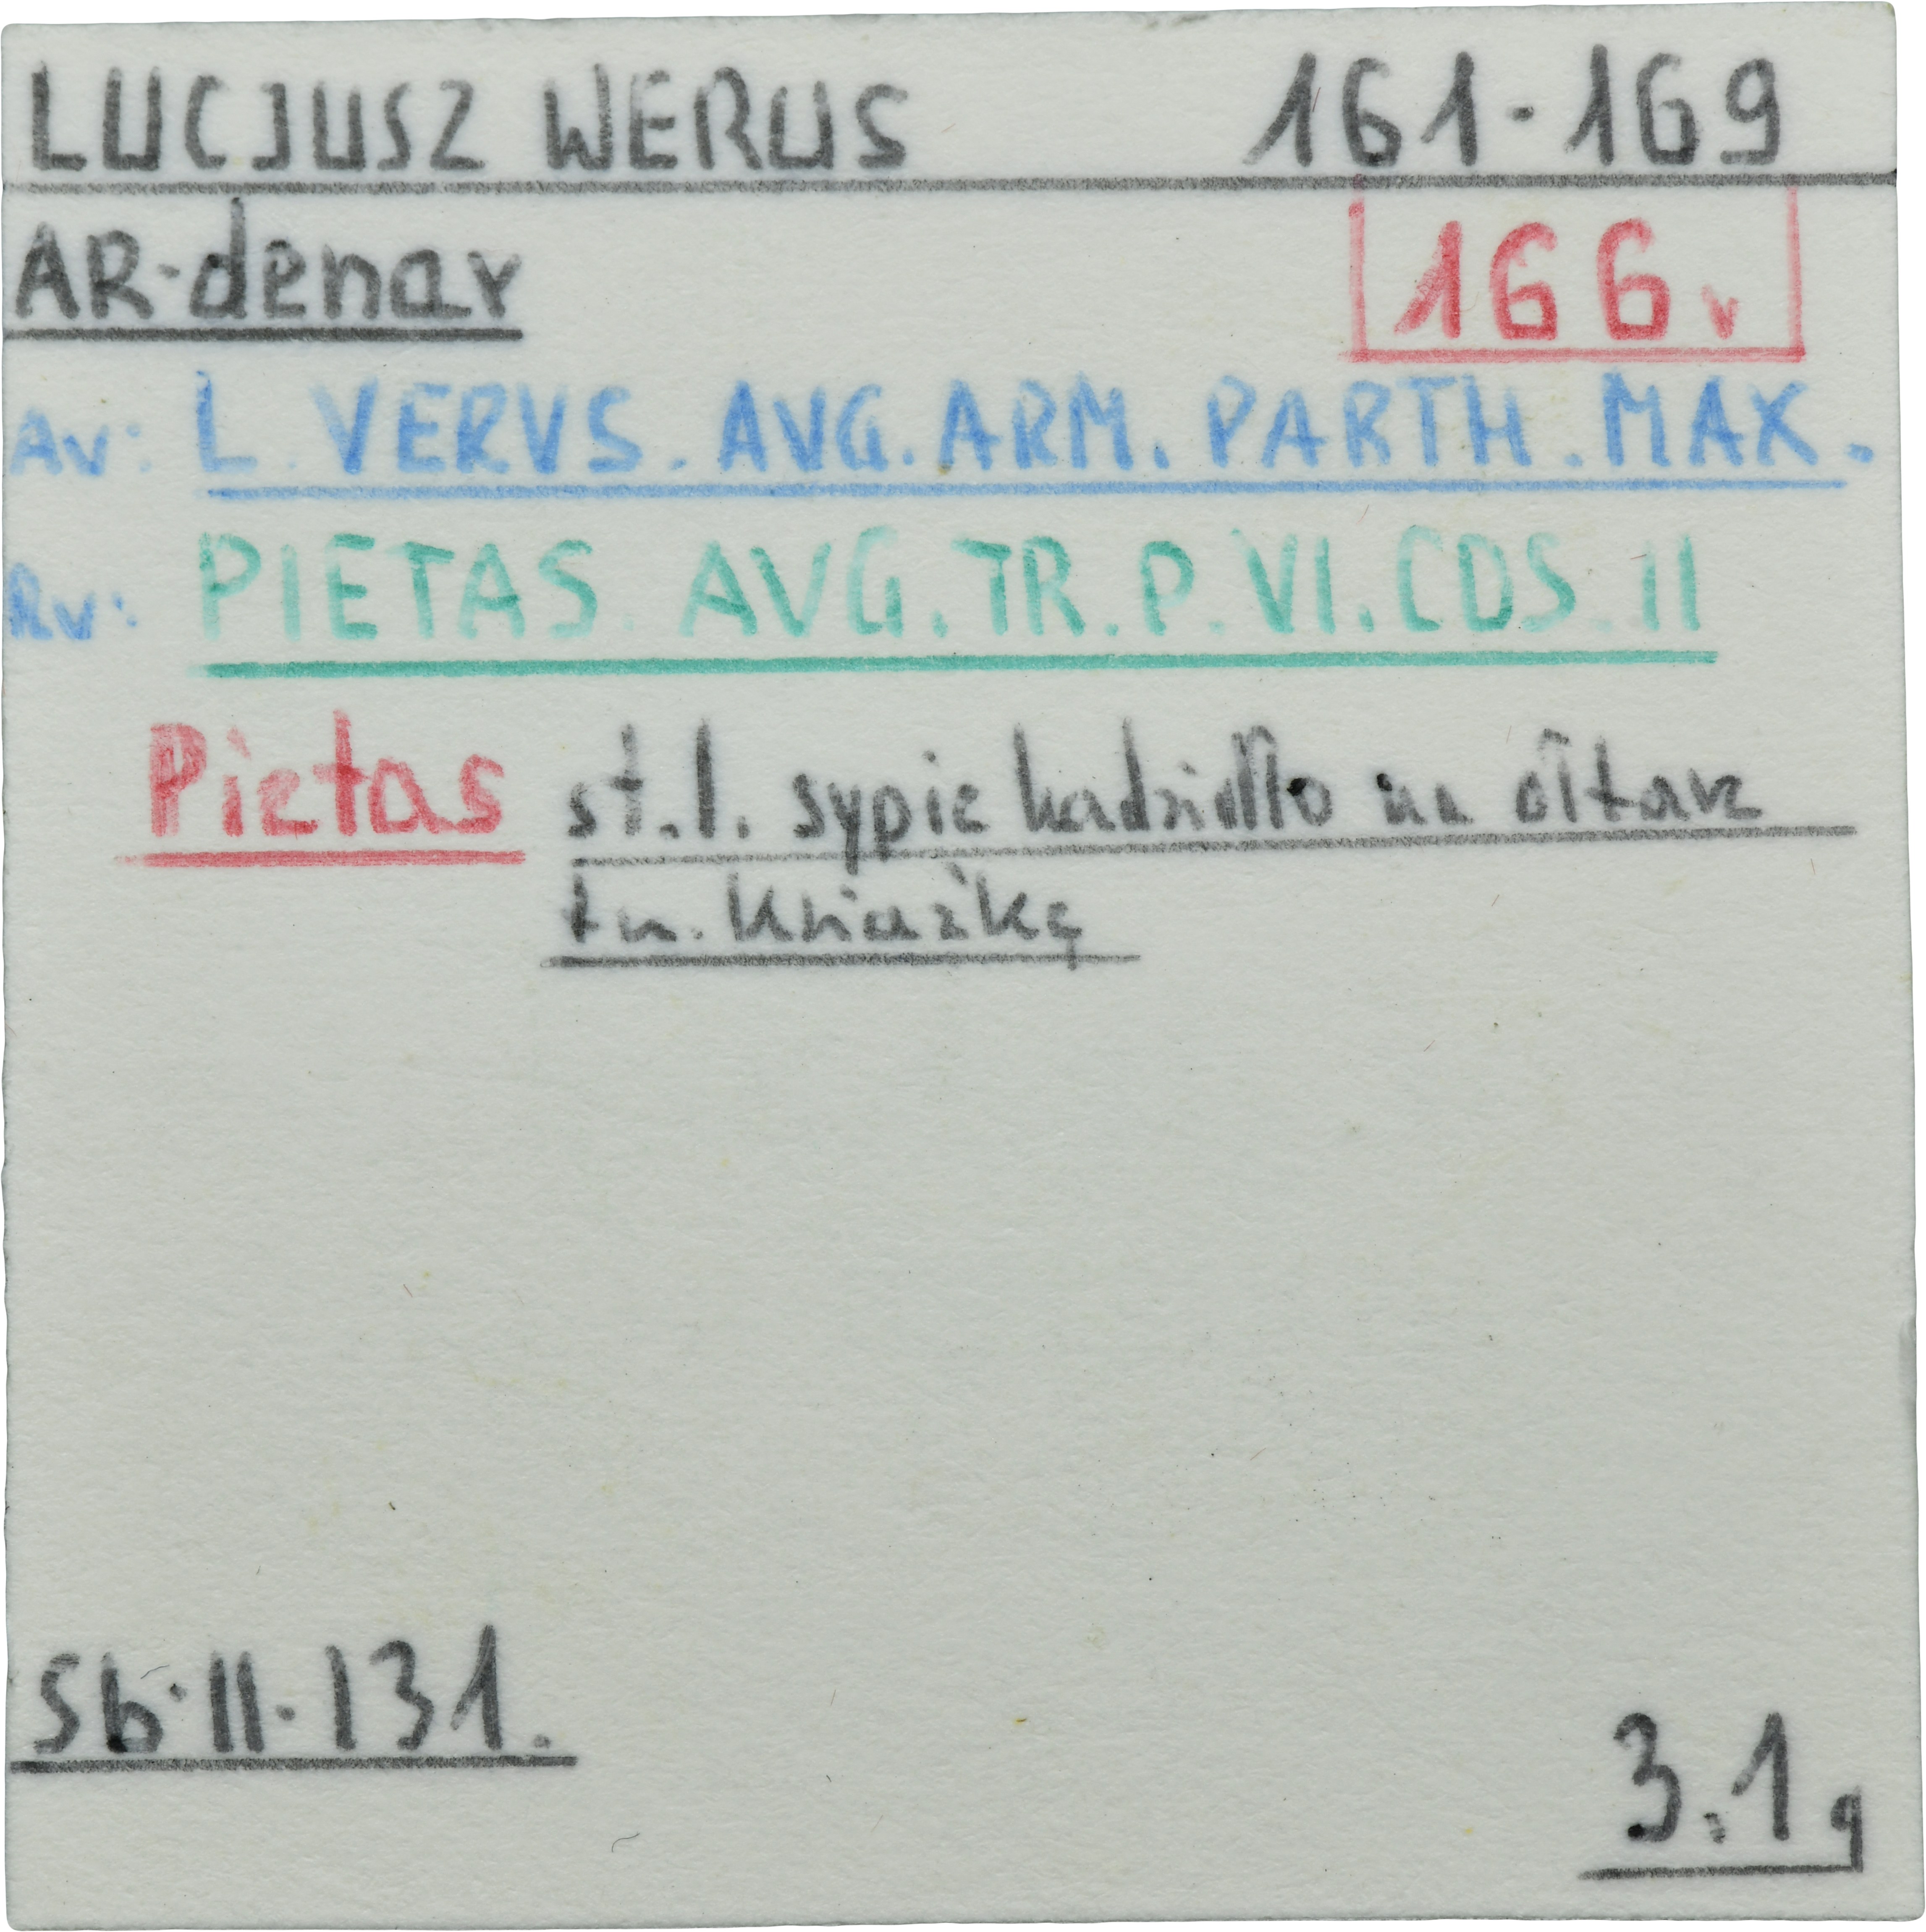 LUCJUSZ WERUS 161-169
AR-denar 166 r
Av: L. VERVS. AVG. ARM. PARTH. MAX.
Rv: PIETAS. AVG. TR. P. VI. COS. II
Pietas st. l. sypie kadzidło na ołtarz
tr.
Sb. II. 131.
3.1 g